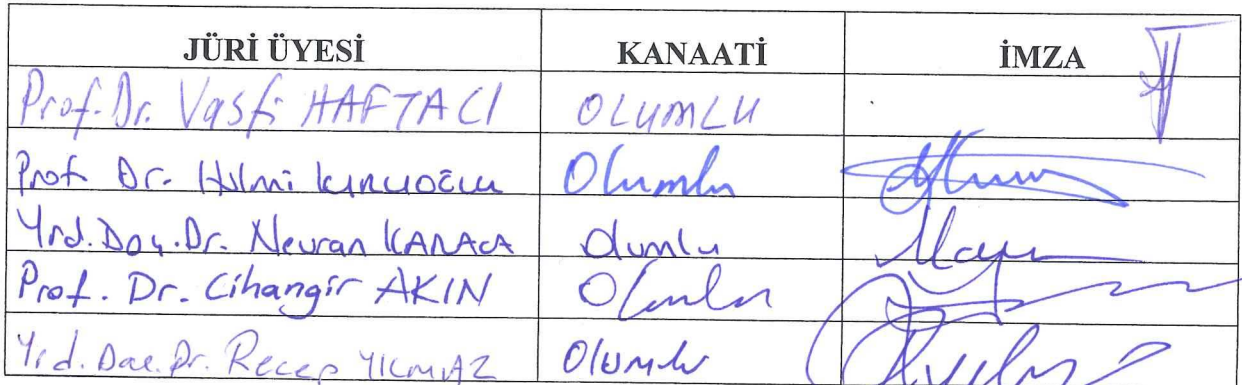 JÜRİ ÜYESİ KANAATİ İMZA
Prof. Dr. Vasfi HAFTACI OLUMLU
Prof. Dr. Hilmi KIRLIOĞLU Olumlu
Yrd. Doç. Dr. Nevran KARACA Olumlu
Prof. Dr. Cihangir AKIN Olumlu
Yrd. Doç. Dr. Recep YILMAZ Olumlu